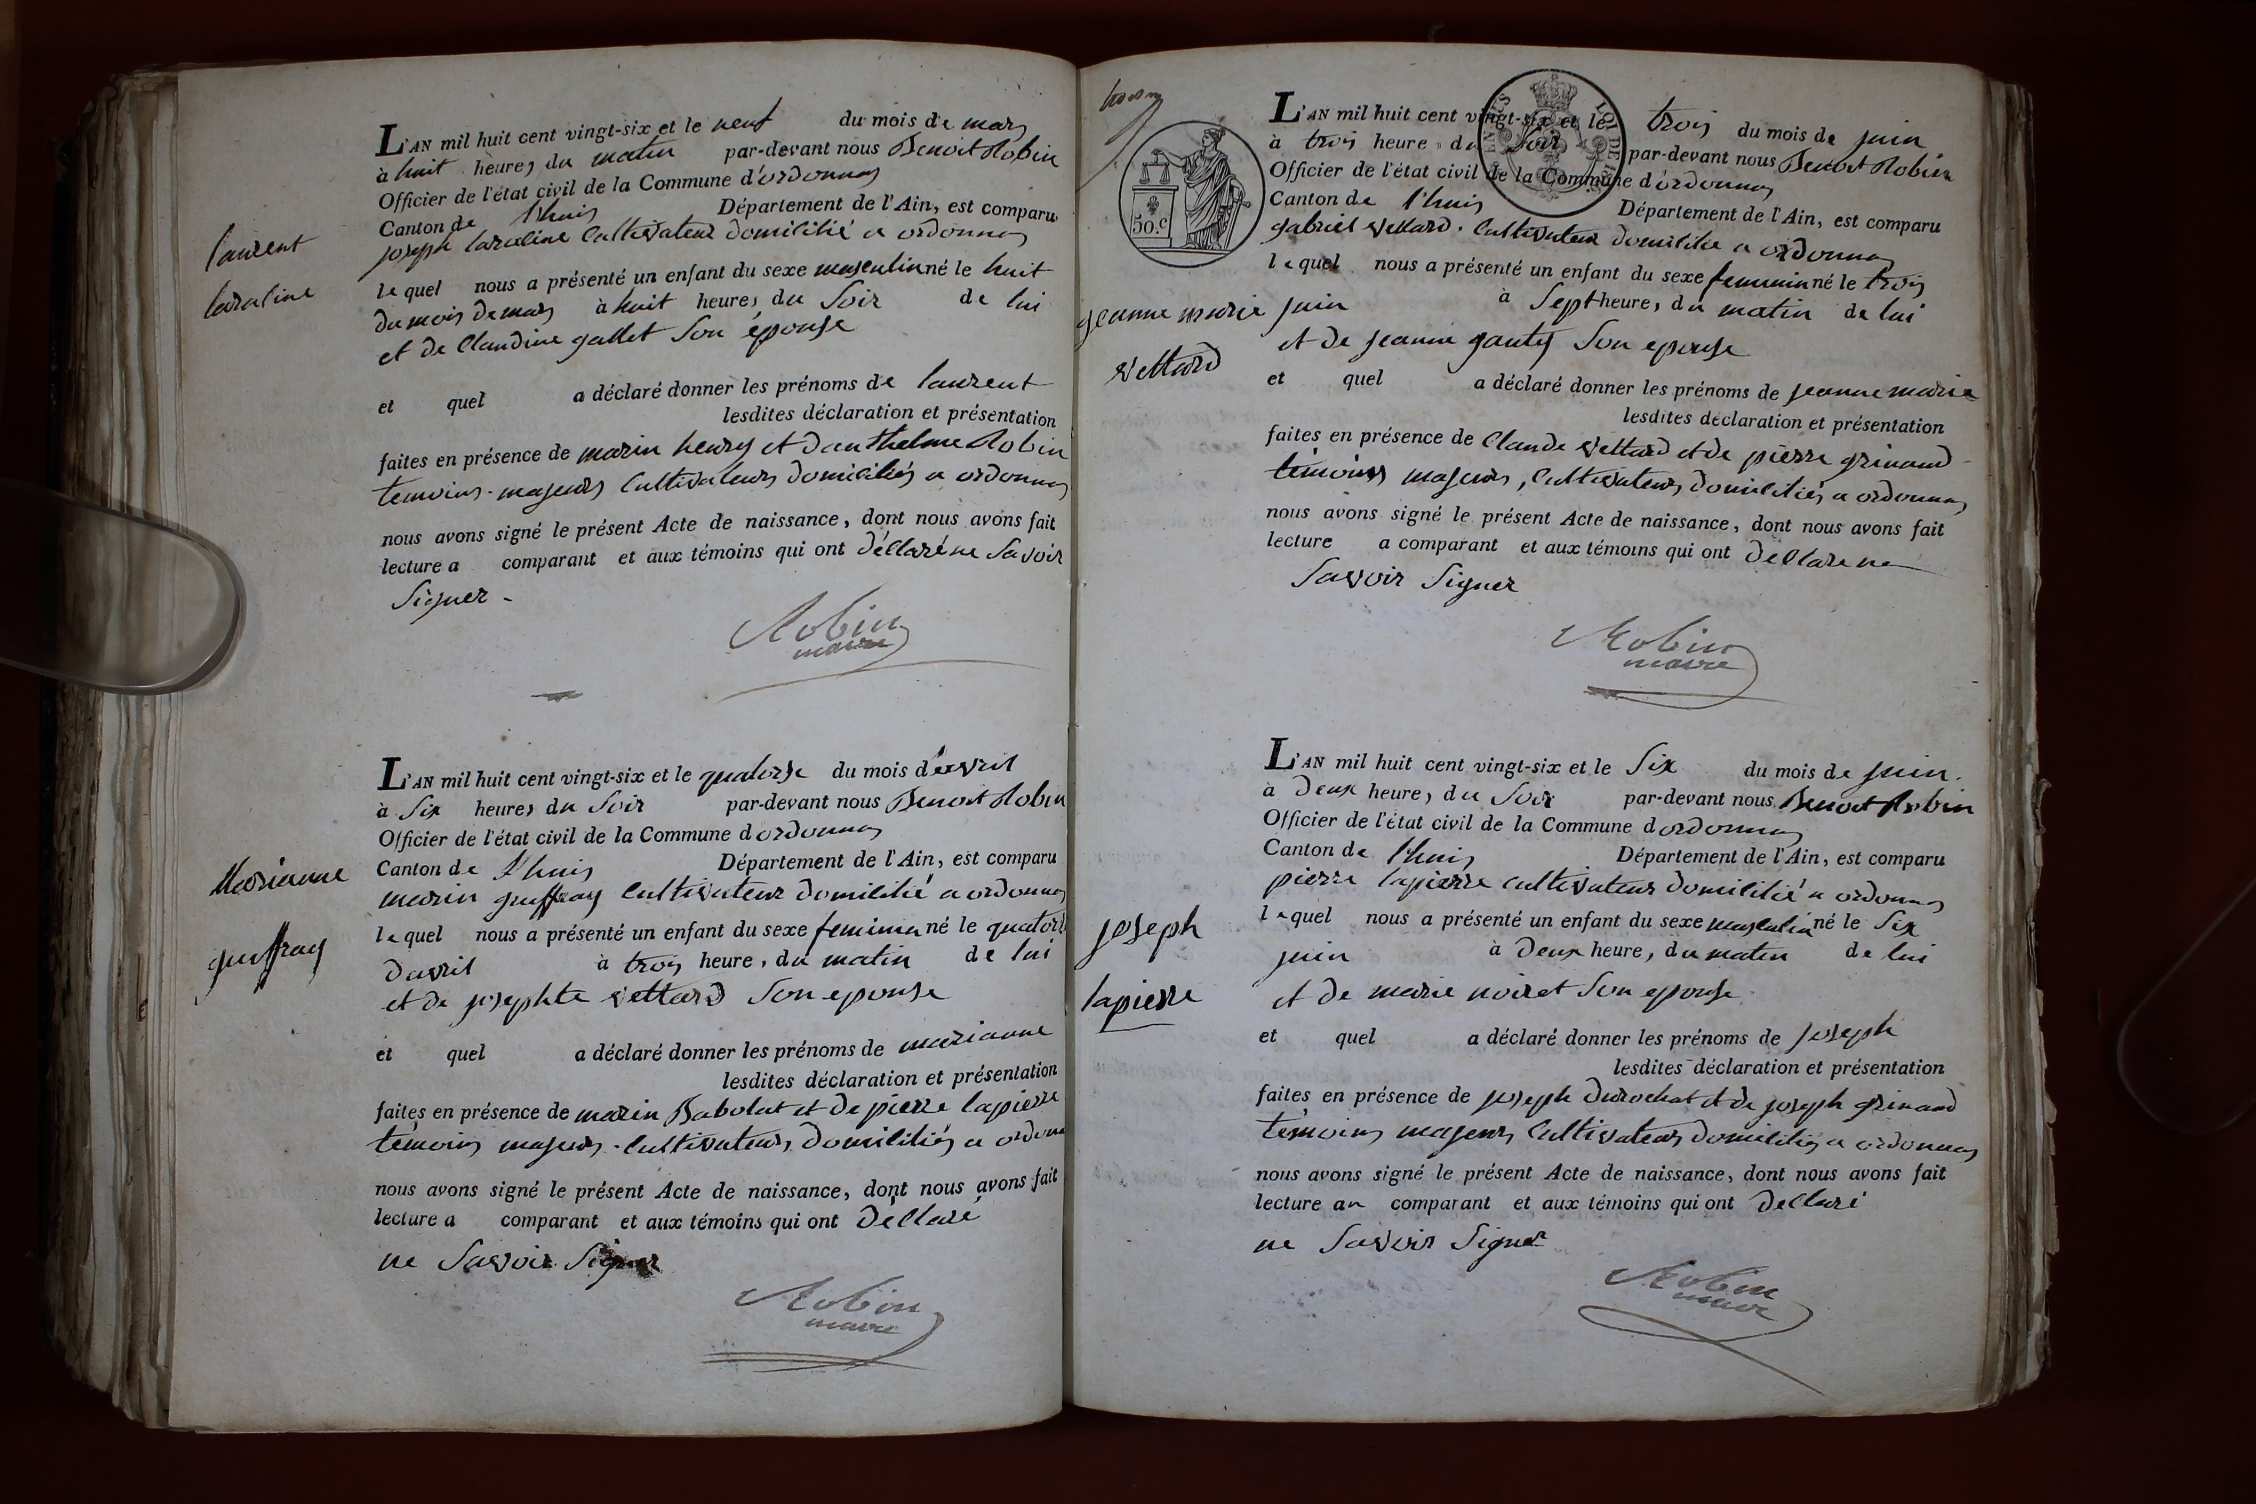 L'AN mil huit cent vingt-six et le neuf du mois de mars
à huit heures du matin par-devant nous Benoit Robin
Officier de l'état civil de la Commune d'ordonnas
Canton de l'huis Département de l'Ain, est comparu
joseph laraline Cultivateur domicilié a ordonnas
laurent
laraline
lequel nous a présenté un enfant du sexe masculin né le huit
du mois de mars à huit heures du Soir de lui
et de Claudine gallet Son épouse
et quel a déclaré donner les prénoms de laurent
lesdites déclaration et présentation
faites en présence de marin henry et d'anthelme Robin
temoins majeurs Cultivateurs domiciliés a ordonnas
nous avons signé le présent Acte de naissance, dont nous avons fait
lecture a comparant et aux témoins qui ont déclaré ne Savoir
Signer -
Robin
maire
L'AN mil huit cent vingt-six et le quatorse du mois d'avril
à Six heures du Soir par-devant nous Benoit Robin
Officier de l'état civil de la Commune d ordonnas
Canton de l'huis Département de l'Ain, est comparu
Marianne
guffray
marin guffray Cultivateur domicilié a ordonnas
lequel nous a présenté un enfant du sexe feminin né le quatorse
davril à trois heure, du matin de lui
et de josephte vettard Son epouse
et quel a déclaré donner les prénoms de marianne
lesdites déclaration et présentation
faites en présence de marin Babolat et de pierre lapierre
témoins majeurs Cultivateurs domiciliés a ordonn
nous avons signé le présent Acte de naissance, dont nous avons fait
lecture a comparant et aux témoins qui ont déclaré
ne Savoir Signer
Robin
maire
L'AN mil huit cent vingt-six et le trois du mois de juin
à trois heure du Soir par-devant nous Benoit Robin
Officier de l'état civil de la Commune d'ordonnas
Canton de l'huis Département de l'Ain, est comparu
50.c
gabriel vettard Cultivateur domicilié a ordonnas
lequel nous a présenté un enfant du sexe feminin né le trois
jeanne marie
vettard
juin à Sept heures du matin de lui
et de jeanne gauty Son epouse
et quel a déclaré donner les prénoms de jeanne marie
lesdites déclaration et présentation
faites en présence de Claude vettard et de pierre grinand
témoins majeurs, Cultivateurs domiciliés a ordonnas
nous avons signé le présent Acte de naissance, dont nous avons fait
lecture a comparant et aux témoins qui ont declare ne
Savoir Signer
Robin
maire
L'AN mil huit cent vingt-six et le Six du mois de juin
à Deux heures du Soir par-devant nous Benoit Robin
Officier de l'état civil de la Commune d ordonnas
Canton de l'huis Département de l'Ain, est comparu
pierre lapierre cultivateur domicilié a ordonnas
joseph
lapierre
lequel nous a présenté un enfant du sexe masculin né le Six
juin à Deux heure, du matin de lui
et de marie noiret Son epouse
et quel a déclaré donner les prénoms de joseph
lesdites déclaration et présentation
faites en présence de joseph Durochat et de joseph grinand
témoins majeurs Cultivateurs domiciliés a ordonnas
nous avons signé le présent Acte de naissance, dont nous avons fait
lecture au comparant et aux témoins qui ont declaré
ne Savoir Signer
Robin
maire